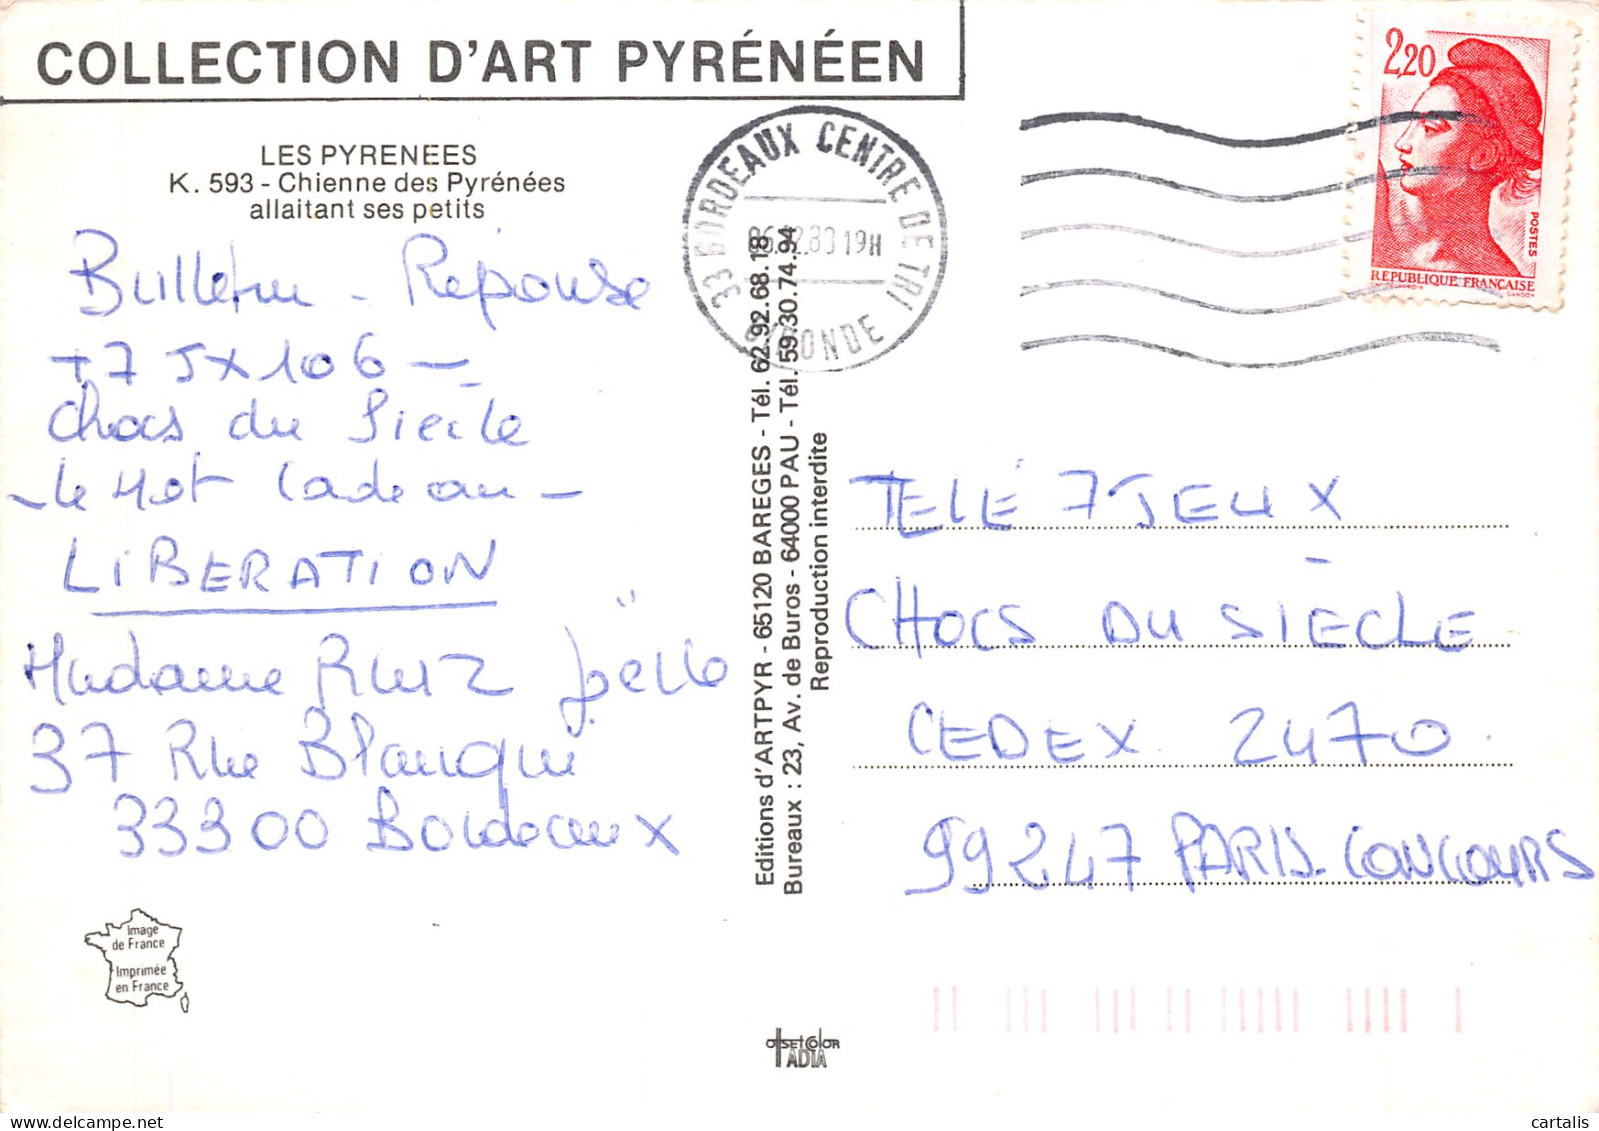 COLLECTION D'ART PYRÉNÉEN
LES PYRENEES
K. 593 - Chienne des Pyrénées
allaitant ses petits
Bulletin - Réponse
T7 JX 106 -
Chocs du Siècle
- le mot Cadeau -
LIBERATION
Madame RUIZ Joëlle
37 Rue Blanqui
33300 Bordeaux
Image
de France
Imprimée
en France
Editions d'ARTPYR - 65120 BAREGES - Tél. 62.92.68.18
Bureaux : 23, Av. de Buros - 64000 PAU - Tél. 59.30.74.94
Reproduction interdite
33 BORDEAUX CENTRE DE TRI
19H
GIRONDE
2,20
POSTES
REPUBLIQUE FRANÇAISE
GANDON
TELÉ 7 JEUX
CHOCS DU SIECLE
CEDEX 2470.
99247 PARIS-CONCOURS
OffSETCOlOR
TADIA
cartalis